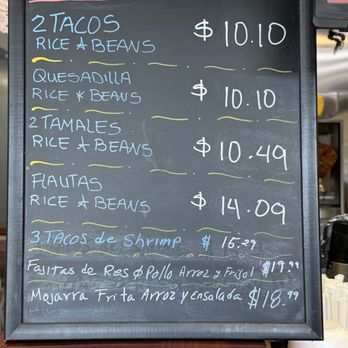 2 TACOS $ 10.10
RICE & BEANS
QUESADILLA
RICE & BEANS $ 10.10
2 TAMALES
RICE & BEANS $ 10.49
FLAUTAS
RICE & BEANS $ 14.09
3 TACOS de Shrimp $ 15.29
Fajitas de Res ó Pollo Arroz y Frijol $19.99
Mojarra Frita Arroz y ensalada $18.99